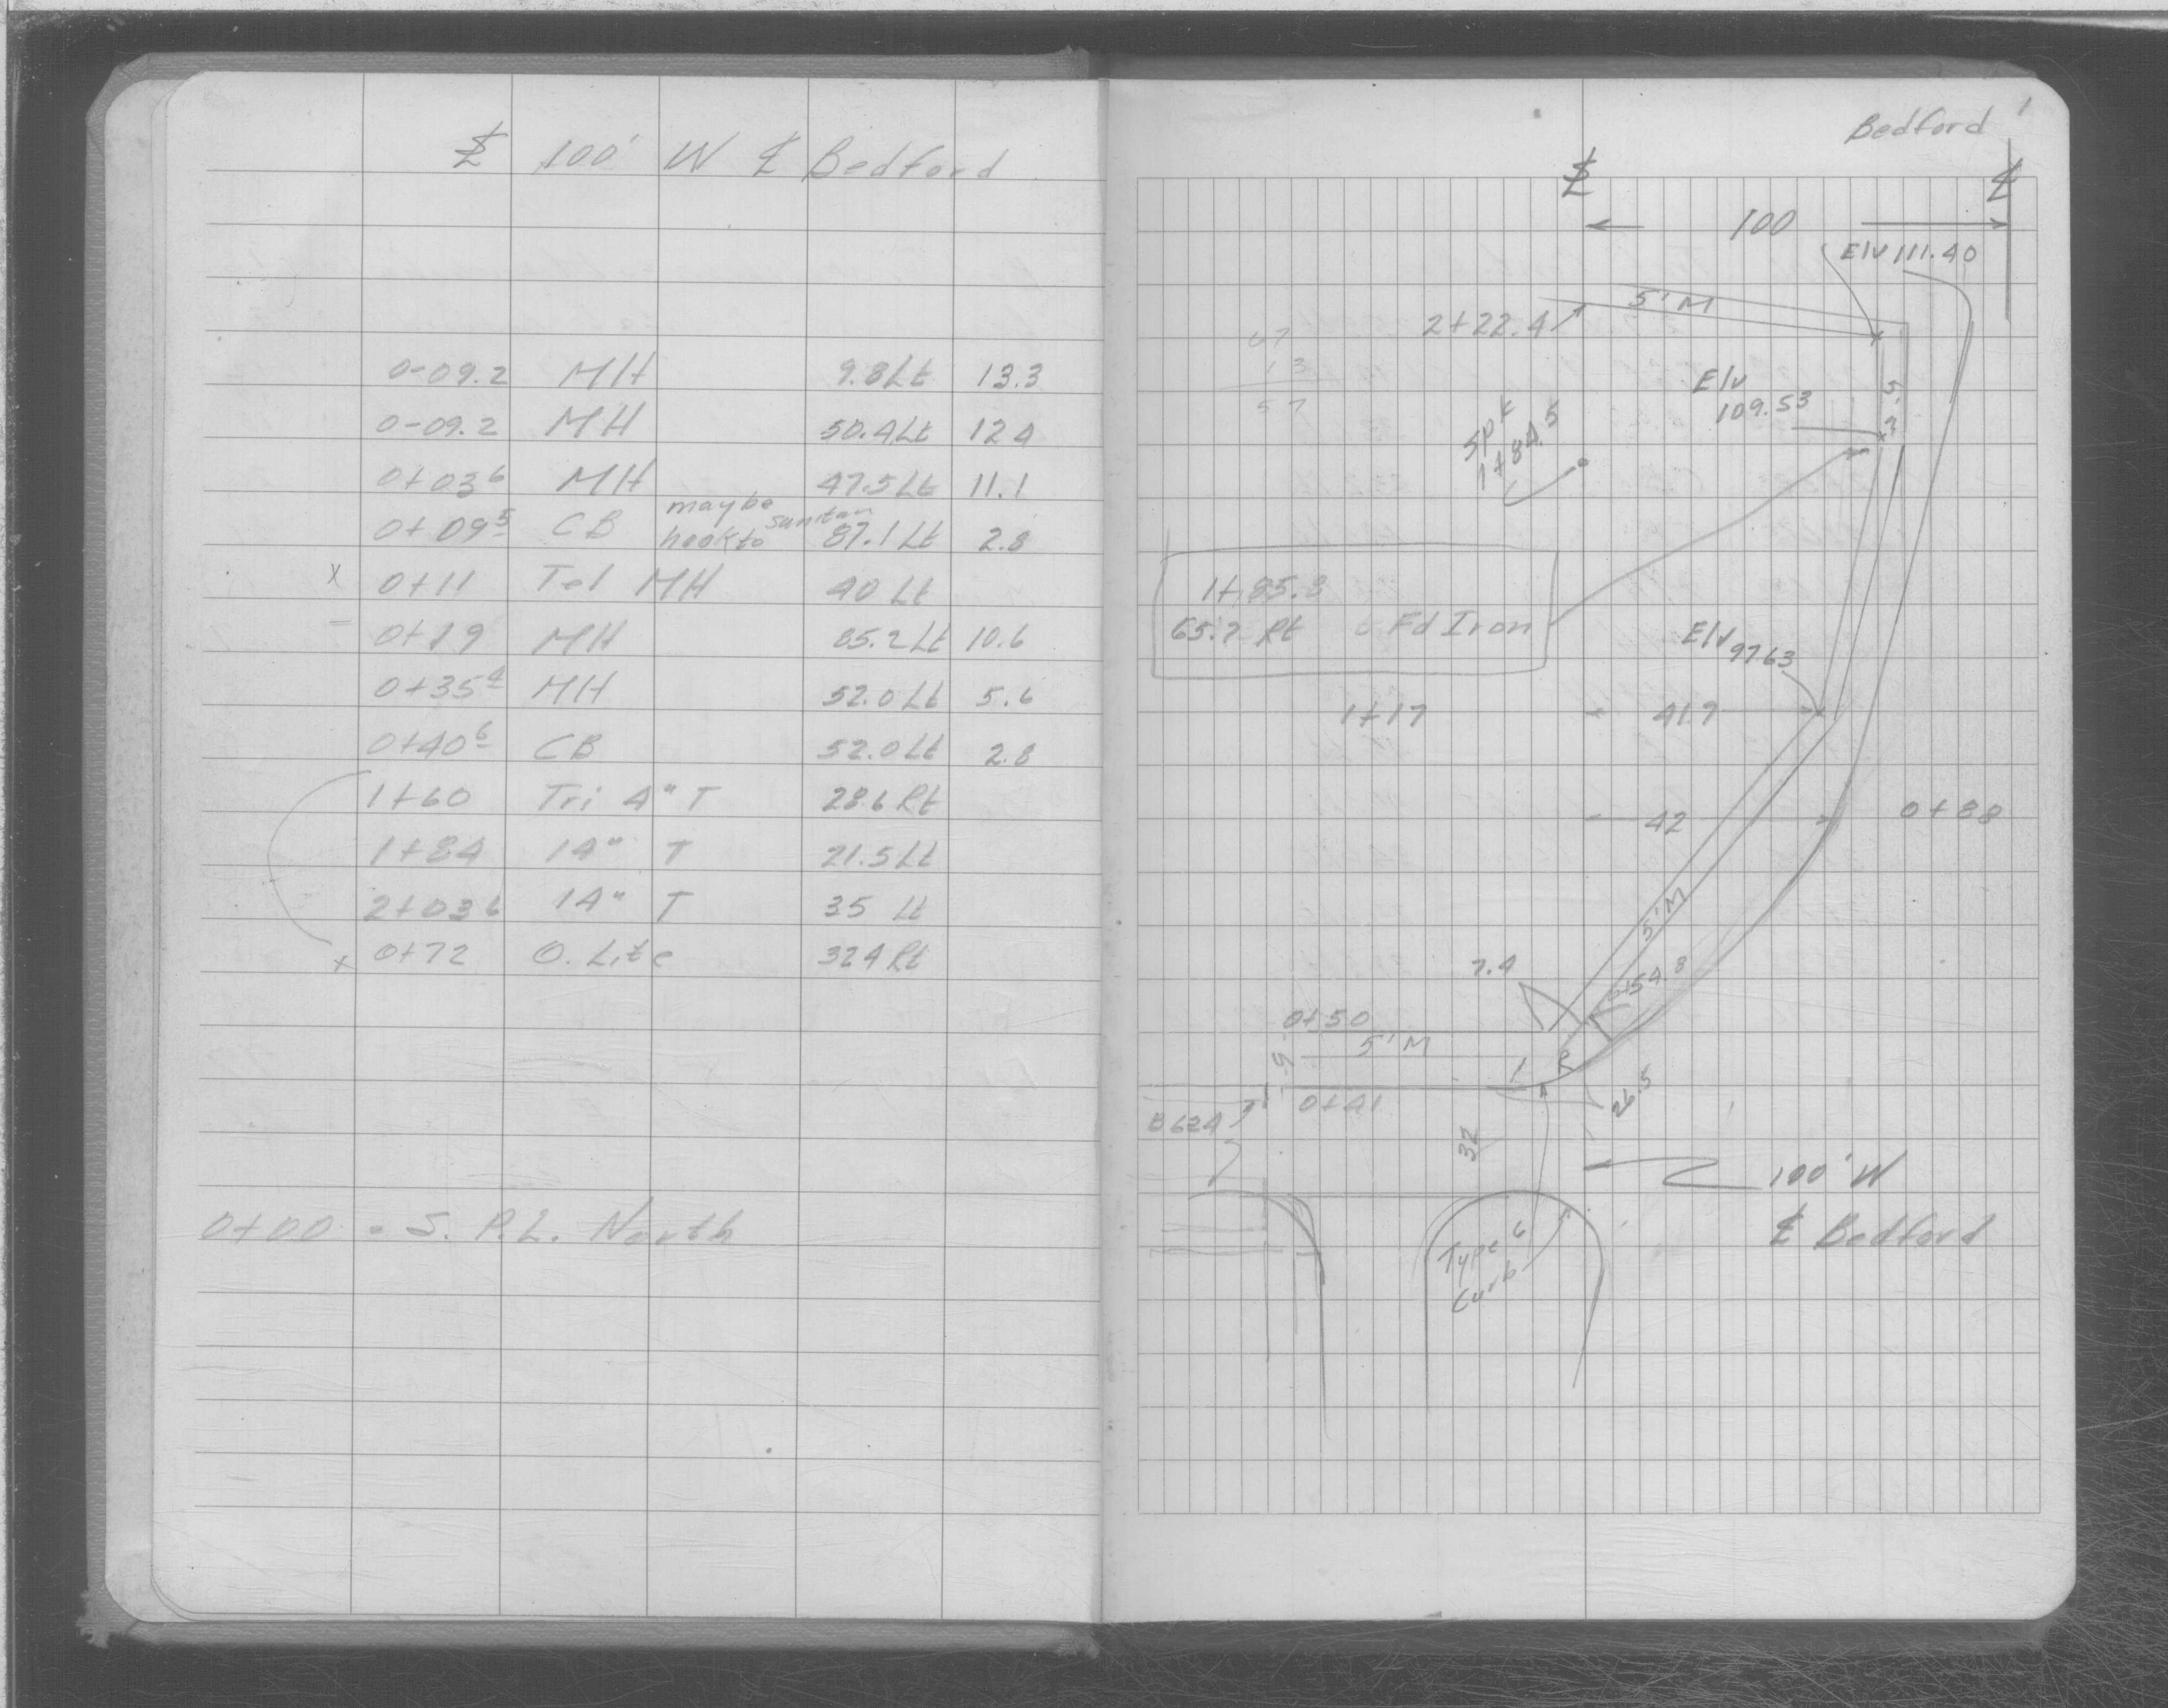 ⅊ 100' W ℄ Bedford
0-09.2 MH 9.8 Lt 13.3
0-09.2 MH 50.4 Lt 12.4
0+03⁶ MH 47.5 Lt 11.1
maybe
0+09⁵ CB hook to sanitan 87.1 Lt 2.8
x 0+11 Tel MH 40 Lt
0+19 MH 85.2 Lt 10.6
0+35⁴ MH 52.0 Lt 5.6
0+40⁶ CB 52.0 Lt 2.8
1+60 Tri 4" T 28.6 Rt
1+84 14" T 21.5 Lt
2+03⁶ 14" T 35 Lt
x 0+72 O. Lite 32.4 Rt
0+00 = S. P.L. North
Bedford 1
⅊ ℄
100
Elv 111.40
5' M
2+22.4
67
13
57
Elv
109.53
Spk
1+84.5
1+85.8
65.7 Rt Fd Iron
Elv 97.63
1+17 41.7
42 0+88
5' M
7.4
0+54.8
0+50
5' M
9
0+41
26.5
B624
32
100' W
℄ Bedford
Type 6
Curb